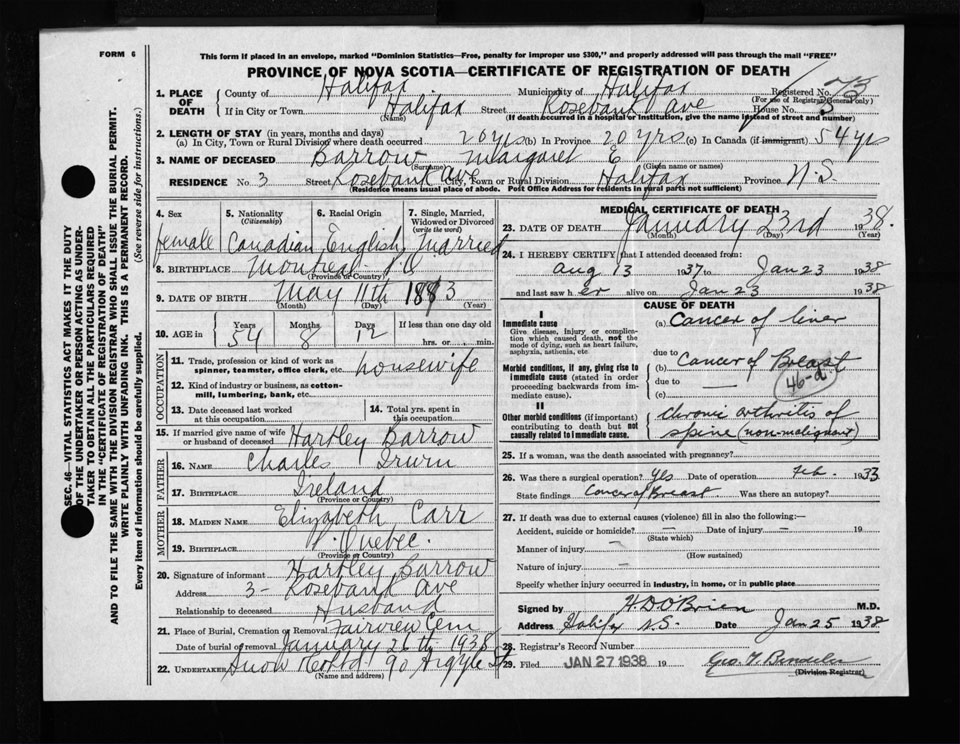 FORM 6
This form if placed in an envelope, marked "Dominion Statistics—Free, penalty for improper use $300," and properly addressed will pass through the mail "FREE"
PROVINCE OF NOVA SCOTIA—CERTIFICATE OF REGISTRATION OF DEATH
1. PLACE OF DEATH
County of Halifax Municipality of Halifax Registered No. 73
(For use of Registrar General only)
If in City or Town Halifax Street Rosebank Ave House No. 3
(Name) (If death occurred in a hospital or institution, give the name instead of street and number)
2. LENGTH OF STAY (in years, months and days)
(a) In City, Town or Rural Division where death occurred 20 yrs (b) In Province 20 yrs (c) In Canada (if immigrant) 54 yrs
3. NAME OF DECEASED Barrow Margaret E
(Surname) (Given name or names)
RESIDENCE No. 3 Street Rosebank Ave City, Town or Rural Division Halifax Province N.S.
(Residence means usual place of abode. Post Office Address for residents in rural parts not sufficient)
4. Sex female
5. Nationality (Citizenship) Canadian
6. Racial Origin English
7. Single, Married, Widowed or Divorced (write the word) Married
8. BIRTHPLACE Montreal P.Q.
(Province or Country)
9. DATE OF BIRTH May 11th 1883
(Month) (Day) (Year)
10. AGE in Years 54 Months 8 Days 12 If less than one day old hrs. or min.
OCCUPATION
11. Trade, profession or kind of work as spinner, teamster, office clerk, etc. housewife
12. Kind of industry or business, as cotton-mill, lumbering, bank, etc.
13. Date deceased last worked at this occupation
14. Total yrs. spent in this occupation
15. If married give name of wife or husband of deceased Hartley Barrow
FATHER
16. NAME Charles Irwin
17. BIRTHPLACE Ireland
(Province or Country)
MOTHER
18. MAIDEN NAME Elizabeth Carr
19. BIRTHPLACE Quebec
(Province or Country)
20. Signature of informant Hartley Barrow
Address 3 - Rosebank Ave
Relationship to deceased Husband
21. Place of Burial, Cremation or Removal Fairview Cem
Date of burial or removal January 26th 1938
22. UNDERTAKER Snow & Co Ltd 90 Argyle St
(Name and address)
MEDICAL CERTIFICATE OF DEATH
23. DATE OF DEATH January 23rd 1938.
(Month) (Day) (Year)
24. I HEREBY CERTIFY that I attended deceased from:
Aug 13 1937 to Jan 23 1938
and last saw her alive on Jan 23 1938
CAUSE OF DEATH
I
Immediate cause
Give disease, injury or complication which caused death, not the mode of dying, such as heart failure, asphyxia, asthenia, etc
(a) Cancer of liver
due to
Morbid conditions, if any, giving rise to immediate cause (stated in order proceeding backwards from immediate cause).
(b) Cancer of Breast
due to —
46-d
(c)
II
Other morbid conditions (if important) contributing to death but not causally related to immediate cause.
Chronic arthritis of
spine (non-malignant)
25. If a woman, was the death associated with pregnancy?
26. Was there a surgical operation? Yes Date of operation Feb. 1933
State findings Cancer of Breast. Was there an autopsy?
27. If death was due to external causes (violence) fill in also the following:—
Accident, suicide or homicide? — Date of injury — 19
(State which)
Manner of injury —
(How sustained)
Nature of injury —
Specify whether injury occurred in industry, in home, or in public place
Signed by H. D O'Brien M.D.
Address Halifax N.S. Date Jan 25 1938
28. Registrar's Record Number
29. Filed JAN 27 1938 19
(Division Registrar)
SEC. 46—VITAL STATISTICS ACT MAKES IT THE DUTY
OF THE UNDERTAKER OR PERSON ACTING AS UNDER-
TAKER TO OBTAIN ALL THE PARTICULARS REQUIRED
IN THE "CERTIFICATE OF REGISTRATION OF DEATH"
AND TO FILE THE SAME WITH THE DIVISION REGISTRAR WHO SHALL ISSUE THE BURIAL PERMIT.
WRITE PLAINLY WITH UNFADING INK. THIS IS A PERMANENT RECORD.
Every item of information should be carefully supplied. (See reverse side for instructions.)